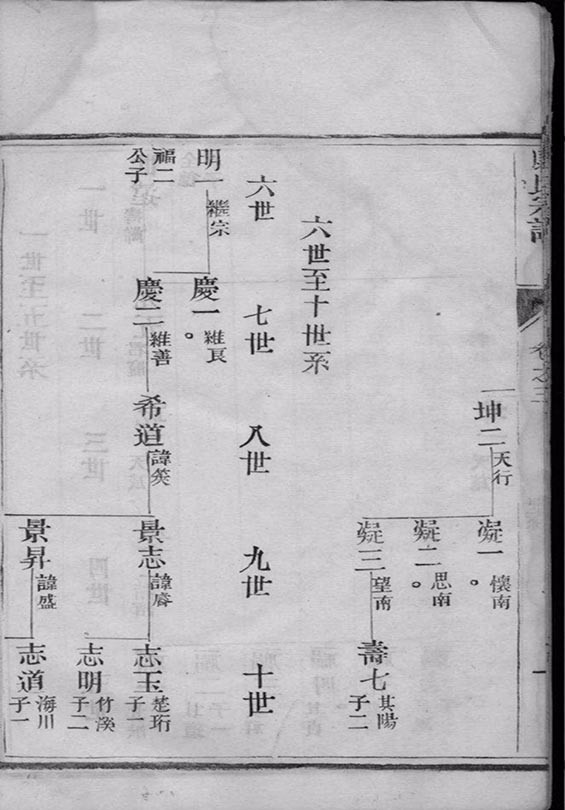 坤二 天行
凝一 懷南
凝二 思南
凝三 望南
壽七 其陽 子二
六世至十世系
六世 七世 八世 九世 十世
明一 繼宗
福二公子
慶一 維良
慶二 維善
希道 諱筴
景志 諱
志玉 楚珩 子一
志明 竹溪 子二
景昇 諱盛
志道 海川 子一
卷之三
一